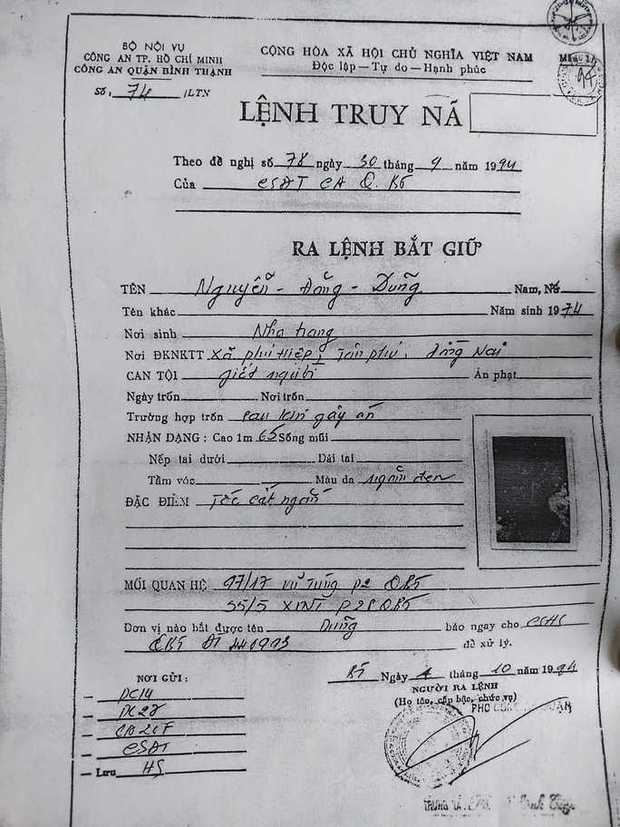 BỘ NỘI VỤ
CÔNG AN TP. HỒ CHÍ MINH
CÔNG AN QUẬN BÌNH THẠNH
Số: 74 /LTN
CỘNG HÒA XÃ HỘI CHỦ NGHĨA VIỆT NAM
Độc lập – Tự do – Hạnh phúc
LỆNH TRUY NÃ
Theo đề nghị số 78 ngày 30 tháng 9 năm 1994
Của CSĐT CA Q. BT
RA LỆNH BẮT GIỮ
TÊN Nguyễn - Đăng - Dũng Nam, Nữ
Tên khác Năm sinh 1974
Nơi sinh Nha trang
Nơi ĐKNKTT Xã phú hiệp, Tân phú, Đồng Nai
CAN TỘI giết người Án phạt
Ngày trốn Nơi trốn
Trường hợp trốn sau khi gây án
NHẬN DẠNG : Cao 1m 65 Sống mũi
Nếp tai dưới Dái tai
Tầm vóc Màu da ngăm đen
ĐẶC ĐIỂM Tóc cắt ngắn
MỐI QUAN HỆ 97/17 Vũ Tùng P2 QBT
55/5 XVNT P28 QBT
Đơn vị nào bắt được tên Dũng báo ngay cho CSHS
QBT ĐT 440903 để xử lý.
BT Ngày 4 tháng 10 năm 1994
NGƯỜI RA LỆNH
(Họ tên, cấp bậc, chức vụ)
NƠI GỬI :
– PC14
– PC27
– CSĐT
– Lưu HS